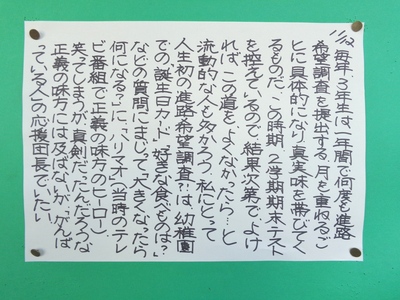 毎年、3年生は一年間で何度も進路
希望調査を提出する。月を重ねるご
とに具体的になり、真実味を帯びてく
るものだ。この時期、2学期期末テスト
を控えているので、結果次第で、よけ
れば、この道を、よくなかったら…と
流動的な人も多かろう。私にとって
人生初の進路希望調査?は、幼稚園
での、誕生日カード。好きな食べものは?
などの質問にまじって、大きくなったら
何になる?に、「リマオ」(当時のテレ
ビ番組で正義の味方のヒーロー)
笑ってしまうが、真剣だったんだろうな
正義の味方には及ばないが、「がんば
っている人」の応援団長でいたい